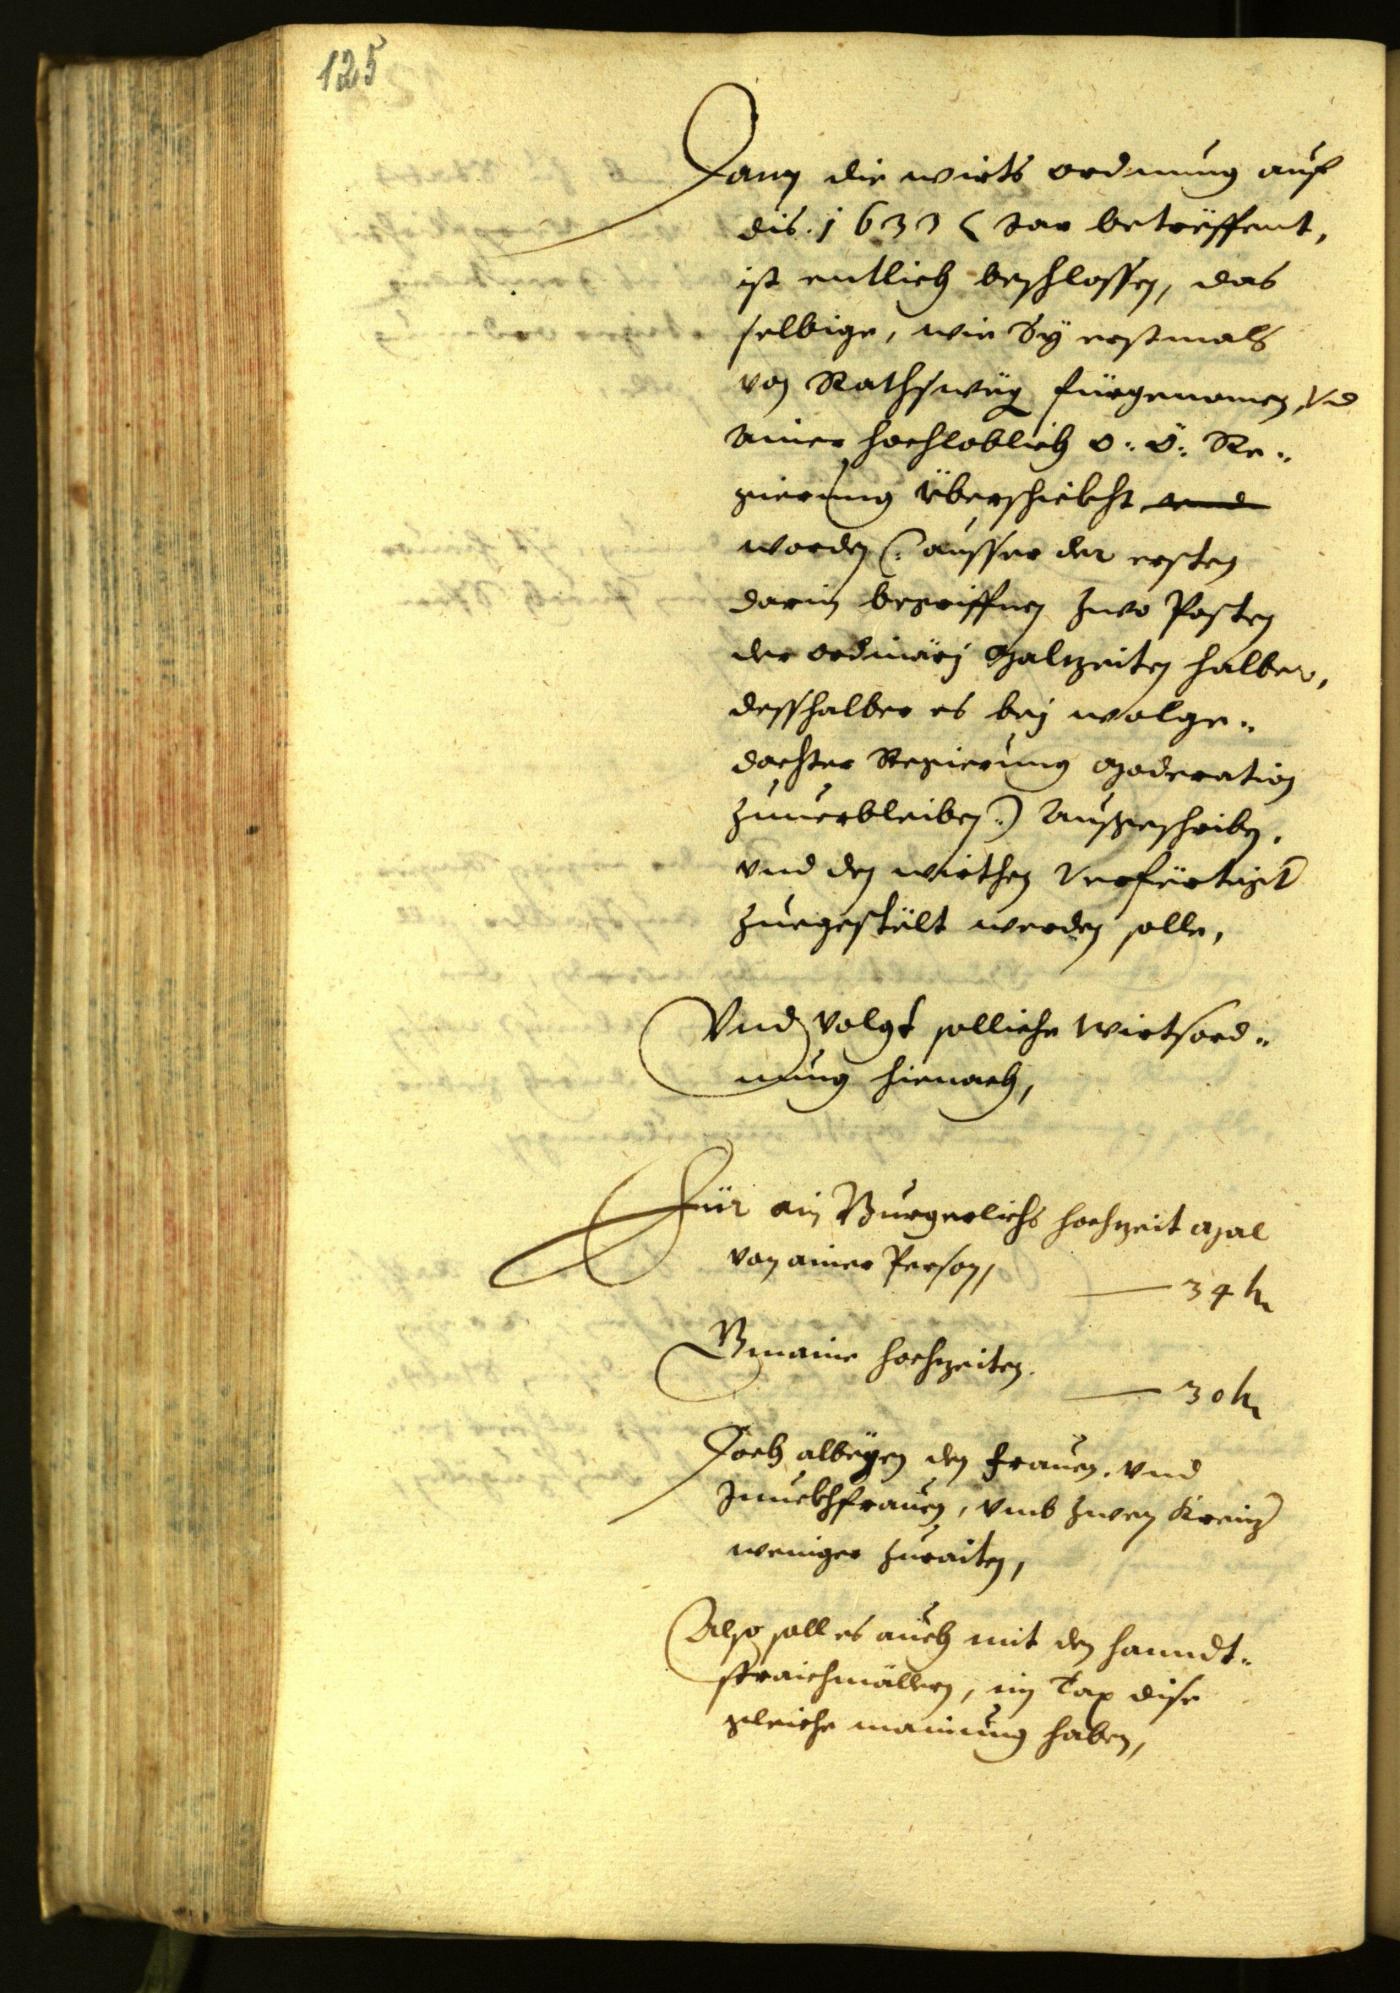 125
Dann die wirts ordnung auf
dis. 1633 Jar betrëffent,
ist entlich beschlossen, das
selbige, wie Sÿ erstmals
von Rathswëg fürgenomen, vnd
Ainer hochloblich o: ö: Re-
gierung überschickht
worden (: ausser der ersten
darin begriffnen zwo Posten
der ordinärj Malzeiten halber,
desshalber es beÿ wolge-
dachter Regierung Moderation
zuuerbleiben :) Aussgeschriben.
vnd den wirthen Verfërtigt
zuegestëlt werden solle,
Vnd volgt solliche Wirtsord-
nung hienach,
Für ain Burgerlichs hochzeit Mal
von ainer Person, — 34 kr
Gmaine hochzeiten. — 30 kr
Doch albëgen den Frauen. vnd
Junckhfrauen, vmb zwen Kreuz
weniger zuraiten,
Also soll es auch mit den hanndt-
straichmällern, im Tax dise
gleiche mainung haben,